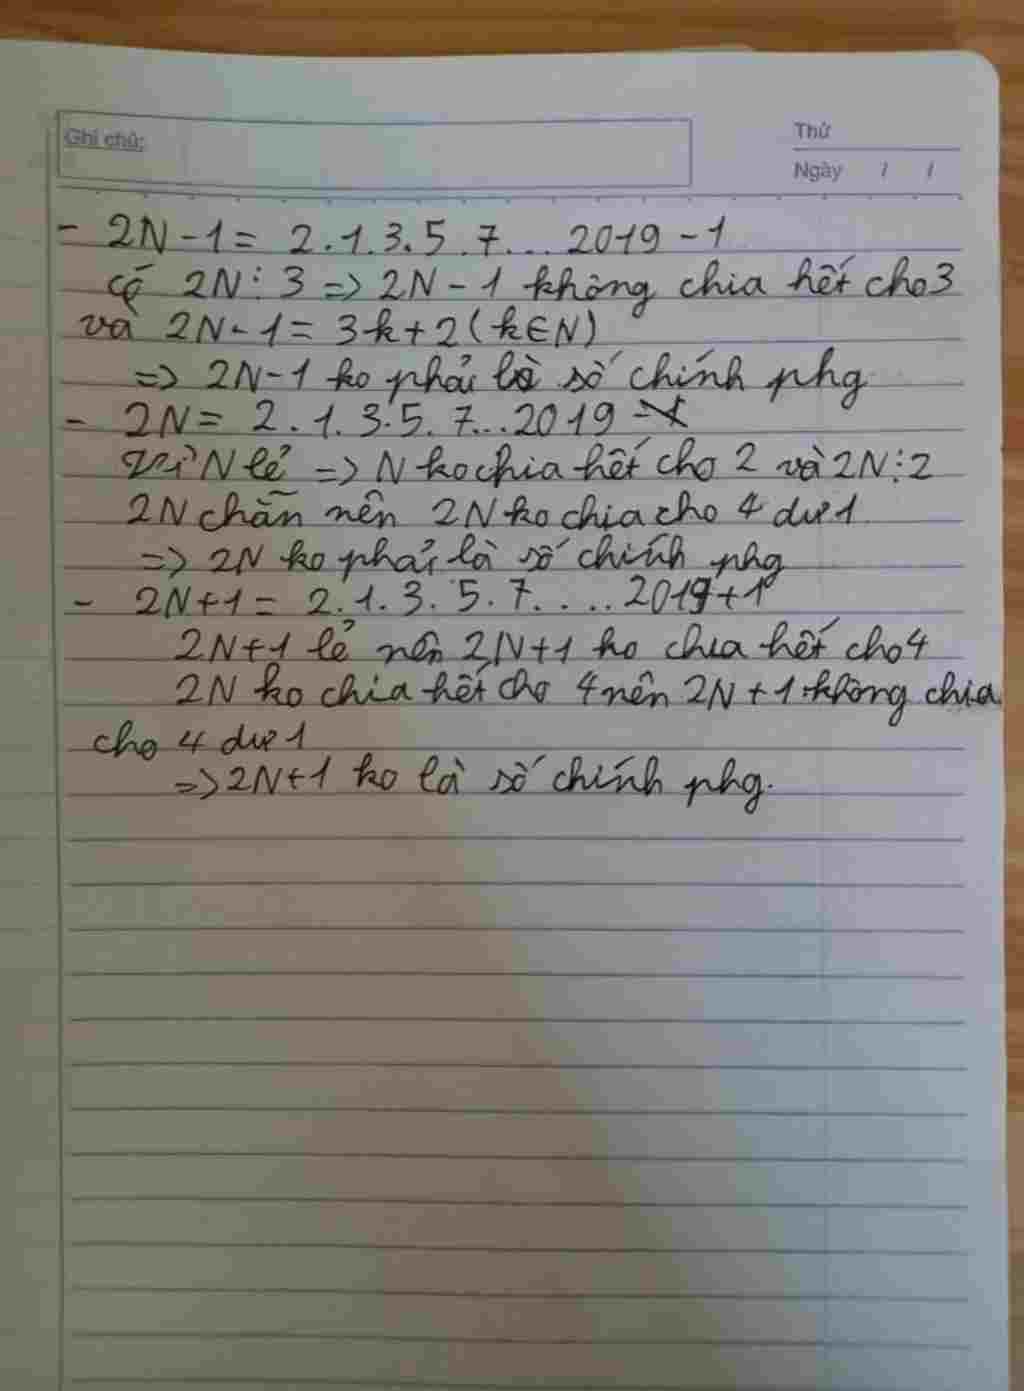 Ghi chú:
Thứ
Ngày / /
- 2N-1 = 2.1.3.5.7... 2019-1
có 2N⋮3 => 2N-1 không chia hết cho 3
và 2N-1 = 3k+2 (k∈N)
=> 2N-1 ko phải là số chính phg
- 2N = 2.1.3.5.7...2019
vì N lẻ => N ko chia hết cho 2 và 2N⋮2
2N chẵn nên 2N ko chia cho 4 dư 1
=> 2N ko phải là số chính phg
- 2N+1 = 2.1.3.5.7....2019+1
2N+1 lẻ nên 2N+1 ko chia hết cho 4
2N ko chia hết cho 4 nên 2N+1 không chia
cho 4 dư 1
=> 2N+1 ko là số chính phg.